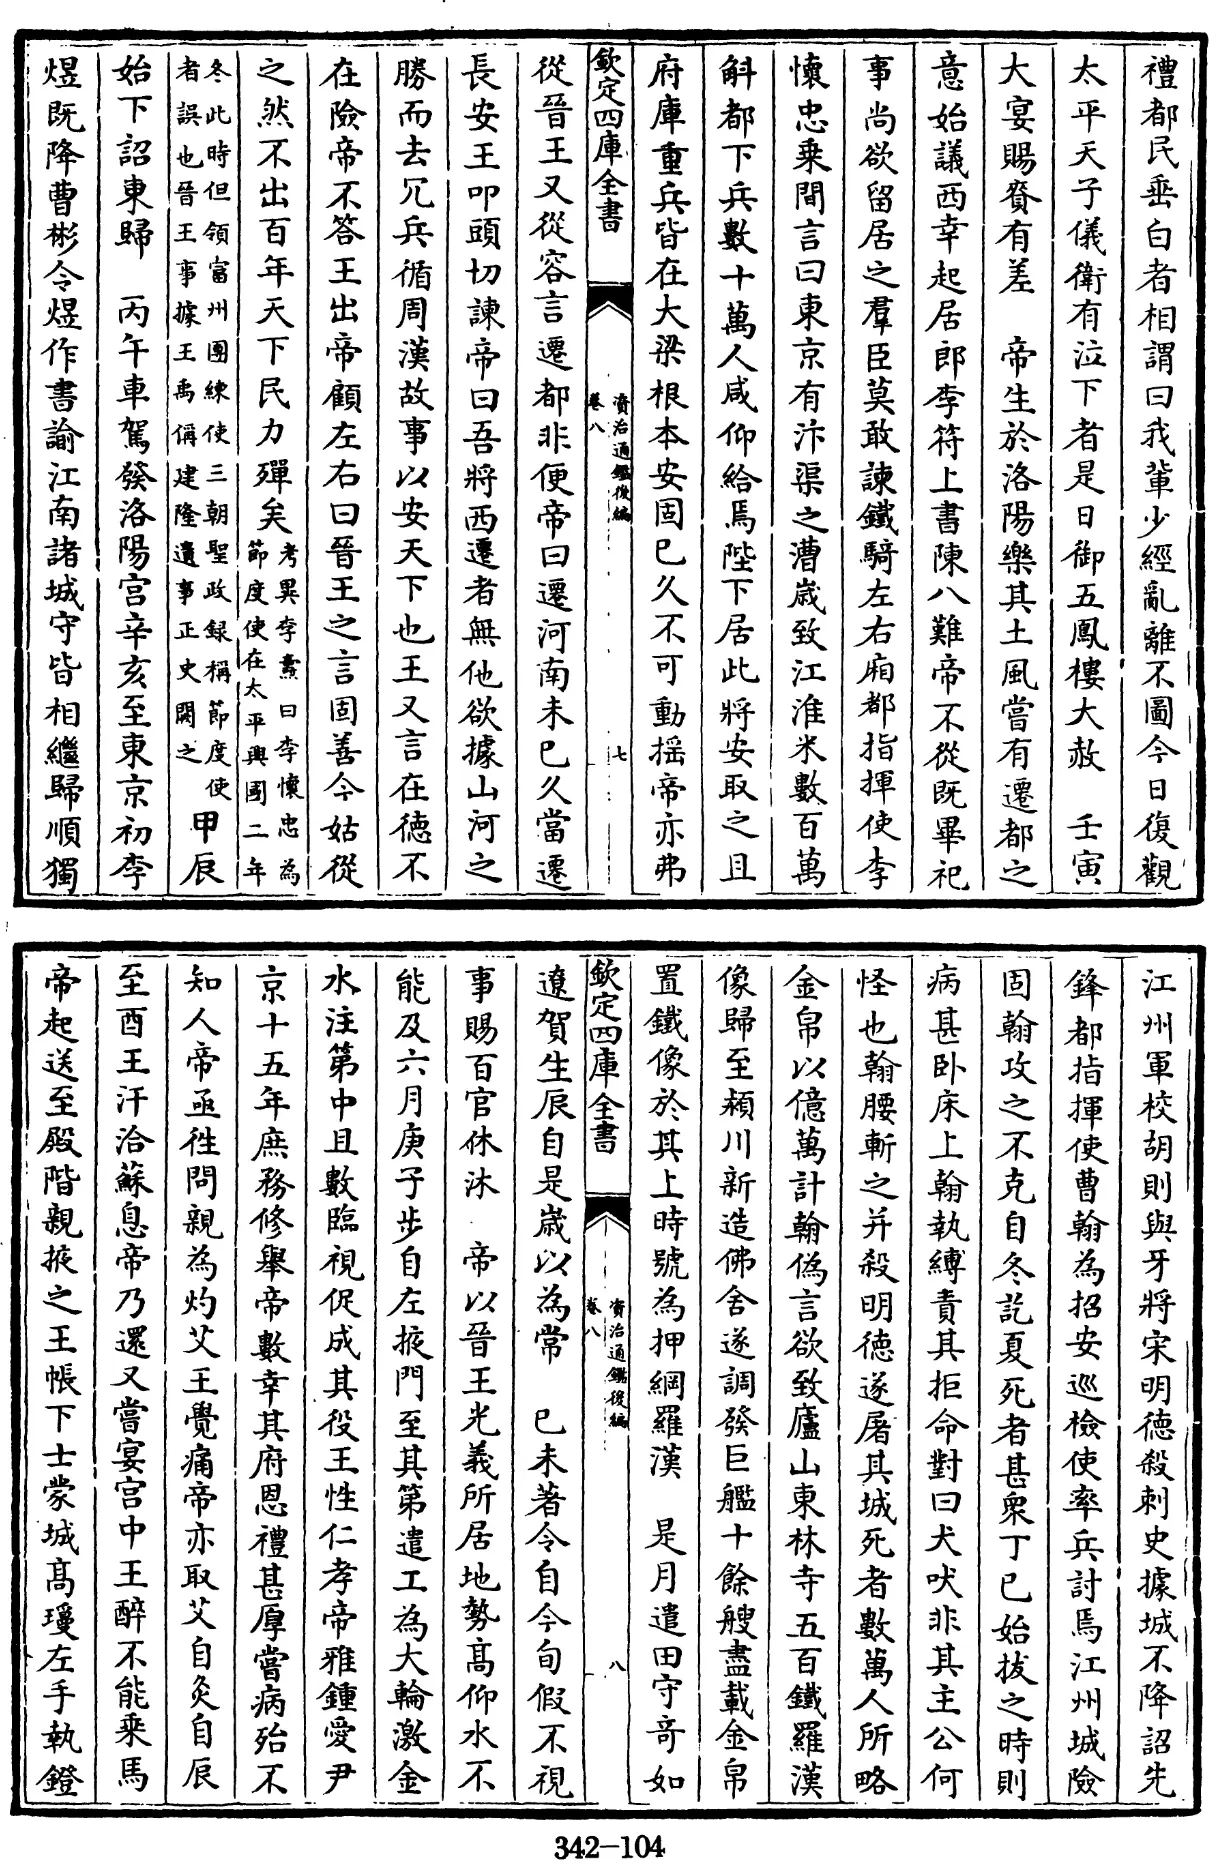 禮都民垂白者相謂曰我輩少經亂離不圖今日復觀
太平天子儀衛有泣下者是日御五鳳樓大赦　壬寅
大宴賜賚有差　帝生於洛陽樂其土風嘗有遷都之
意始議西幸起居郎李符上書陳八難帝不從既畢祀
事尚欲留居之羣臣莫敢諫鐵騎左右廂都指揮使李
懷忠乗間言曰東京有汴渠之漕歳致江淮米數百萬
斛都下兵數十萬人咸仰給焉陛下居此將安取之且
府庫重兵皆在大梁根本安固已久不可動揺帝亦弗
欽定四庫全書
資治通鑑後編
卷八
七
從晉王又從容言遷都非便帝曰遷河南未已久當遷
長安王叩頭切諫帝曰吾將西遷者無他欲據山河之
勝而去冗兵循周漢故事以安天下也王又言在德不
在險帝不答王出帝顧左右曰晉王之言固善今姑從
之然不出百年天下民力殫矣
考異李燾曰李懷忠為
節度使在太平興國二年
冬此時但領富州團練使三朝聖政録稱節度使
者誤也晉王事據王禹偁建隆遺事正史闕之
甲辰
始下詔東歸　丙午車駕發洛陽宫辛亥至東京初李
煜既降曹彬令煜作書諭江南諸城守皆相繼歸順獨
江州軍校胡則與牙將宋明德殺刺史據城不降詔先
鋒都指揮使曹翰為招安巡檢使率兵討焉江州城險
固翰攻之不克自冬訖夏死者甚衆丁已始拔之時則
病甚卧床上翰執縛責其拒命對曰犬吠非其主公何
怪也翰腰斬之并殺明德遂屠其城死者數萬人所略
金帛以億萬計翰偽言欲致廬山東林寺五百鐵羅漢
像歸至潁川新造佛舍遂調發巨艦十餘艘盡載金帛
置鐵像於其上時號為押綱羅漢　是月遣田守奇如
欽定四庫全書
資治通鑑後編
卷八
八
遼賀生辰自是歳以為常　已未著令自今旬假不視
事賜百官休沐　帝以晉王光義所居地勢髙仰水不
能及六月庚子步自左掖門至其第遣工為大輪激金
水注第中且數臨視促成其役王性仁孝帝雅鍾愛尹
京十五年庶務修舉帝數幸其府恩禮甚厚嘗病殆不
知人帝亟徃問親為灼艾王覺痛帝亦取艾自灸自辰
至酉王汗洽蘇息帝乃還又嘗宴宫中王醉不能乘馬
帝起送至殿階親掖之王帳下士蒙城髙瓊左手執鐙
342-104